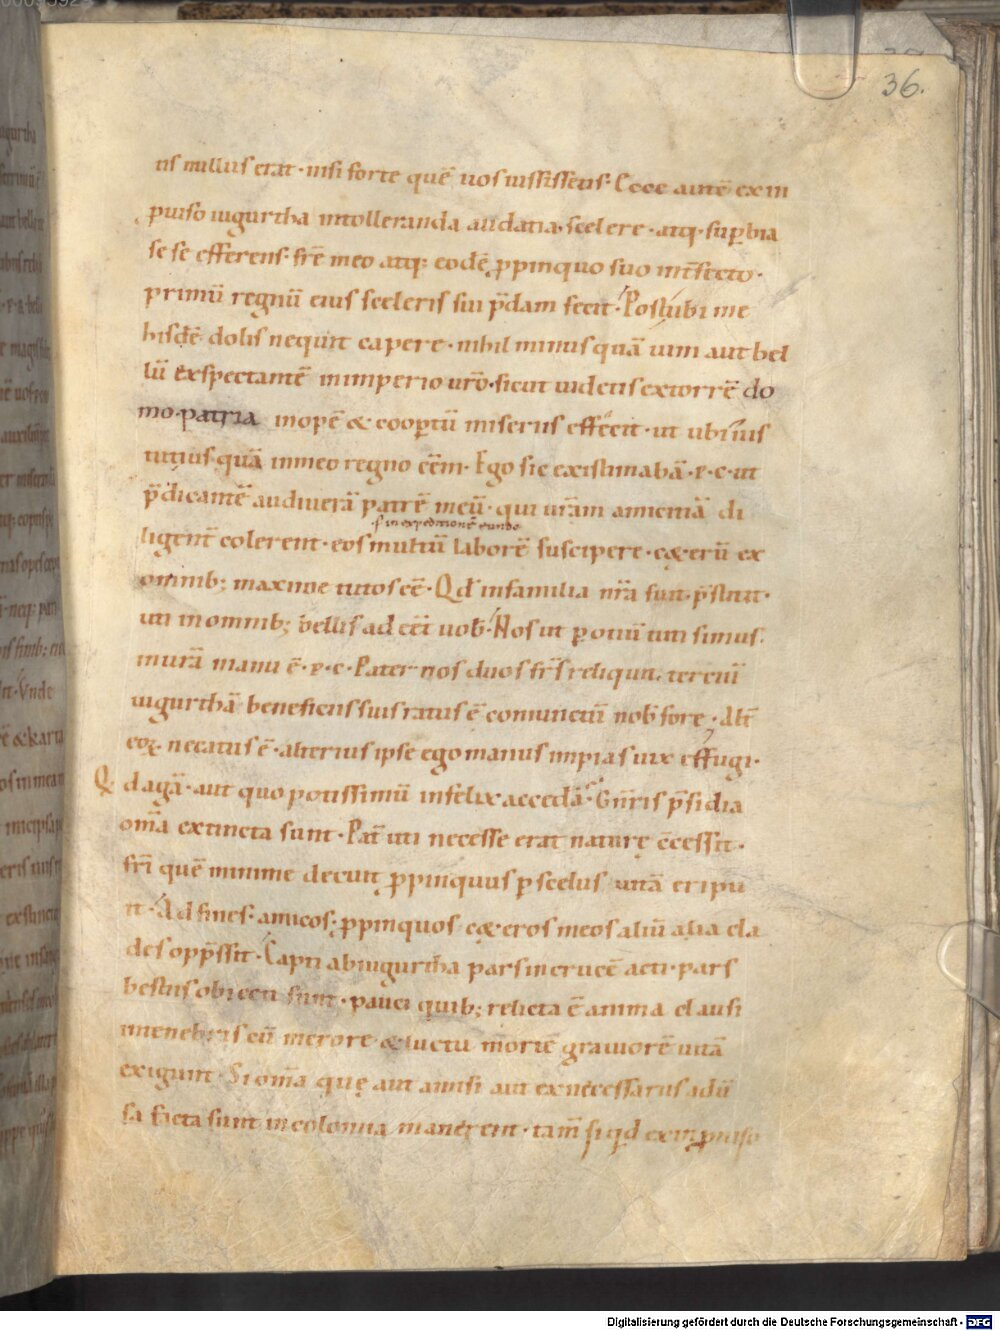 36.
tis nullus erat · nisi forte quē uos iussissetis · Ecce autē ex in
puiso iugurtha intolleranda audatia · scelere · atq; sup̄bia
se se efferens · fr̄e meo atq; eodē p̱pinquo suo int̄fecto ·
primū regnū eius sceleris sui p̄dam fecit · Post ubi me
hisdē dolis nequit capere · nihil minus quā uim aut bel
lū exspectantē in imperio ur̄o · sicut uidetis extorrē do
mo · patria inopē & coop̱tū miseriis effecit · ut ubi uis
tutius quā in meo regno eēm · Ego sic existimabā · p · c · ut
p̄dicantē audiuerā patrē meū · qui ur̄am amicitiā di
s in expeditionē eundo
ligent̄ colerent · eos multū laborē suscipere · cęterū ex
omnib; maxime tutos eē · Qd̄ in familia nr̄a fuit · p̄stitit ·
uti in omnib; bellis adeēt uob · Nos ut p̱ otiū tuti simus ·
in ur̄a manu ē · p · c · Pater nos duos fr̄s reliquit · terciū
iugurthā beneficiis suis ratus ē coniunctū nob̄ fore · Alt̄
eoꝝ necatus ē · alterius ipse ego manus impias uix effugi ·
Q;
d agā · aut quo potissimū infelix accedā · Gn̄ris p̄sidia
om̄a extincta sunt · Pat̄ uti necesse erat naturę ċcessit ·
fr̄i quē minime decuit p̱pinquus p̱ scelus uitā eripu
it · Adfines · amicos · p̱pinquos cęteros meos aliū alia cla
des opp̄ssit · Capti ab iugurtha pars in crucē acti · pars
bestiis obiecti sunt · pauci quib; relicta ē anima clausi
in tenebris cū merore & luctu morte grauiorē uitā
exigunt · Si om̄a quę aut amisi aut ex necessariis aduer̄
sa facta sunt incolomia manerent · tam̄ si qd̄ ex inp̱uiso
Digitalisierung gefördert durch die Deutsche Forschungsgemeinschaft - DFG